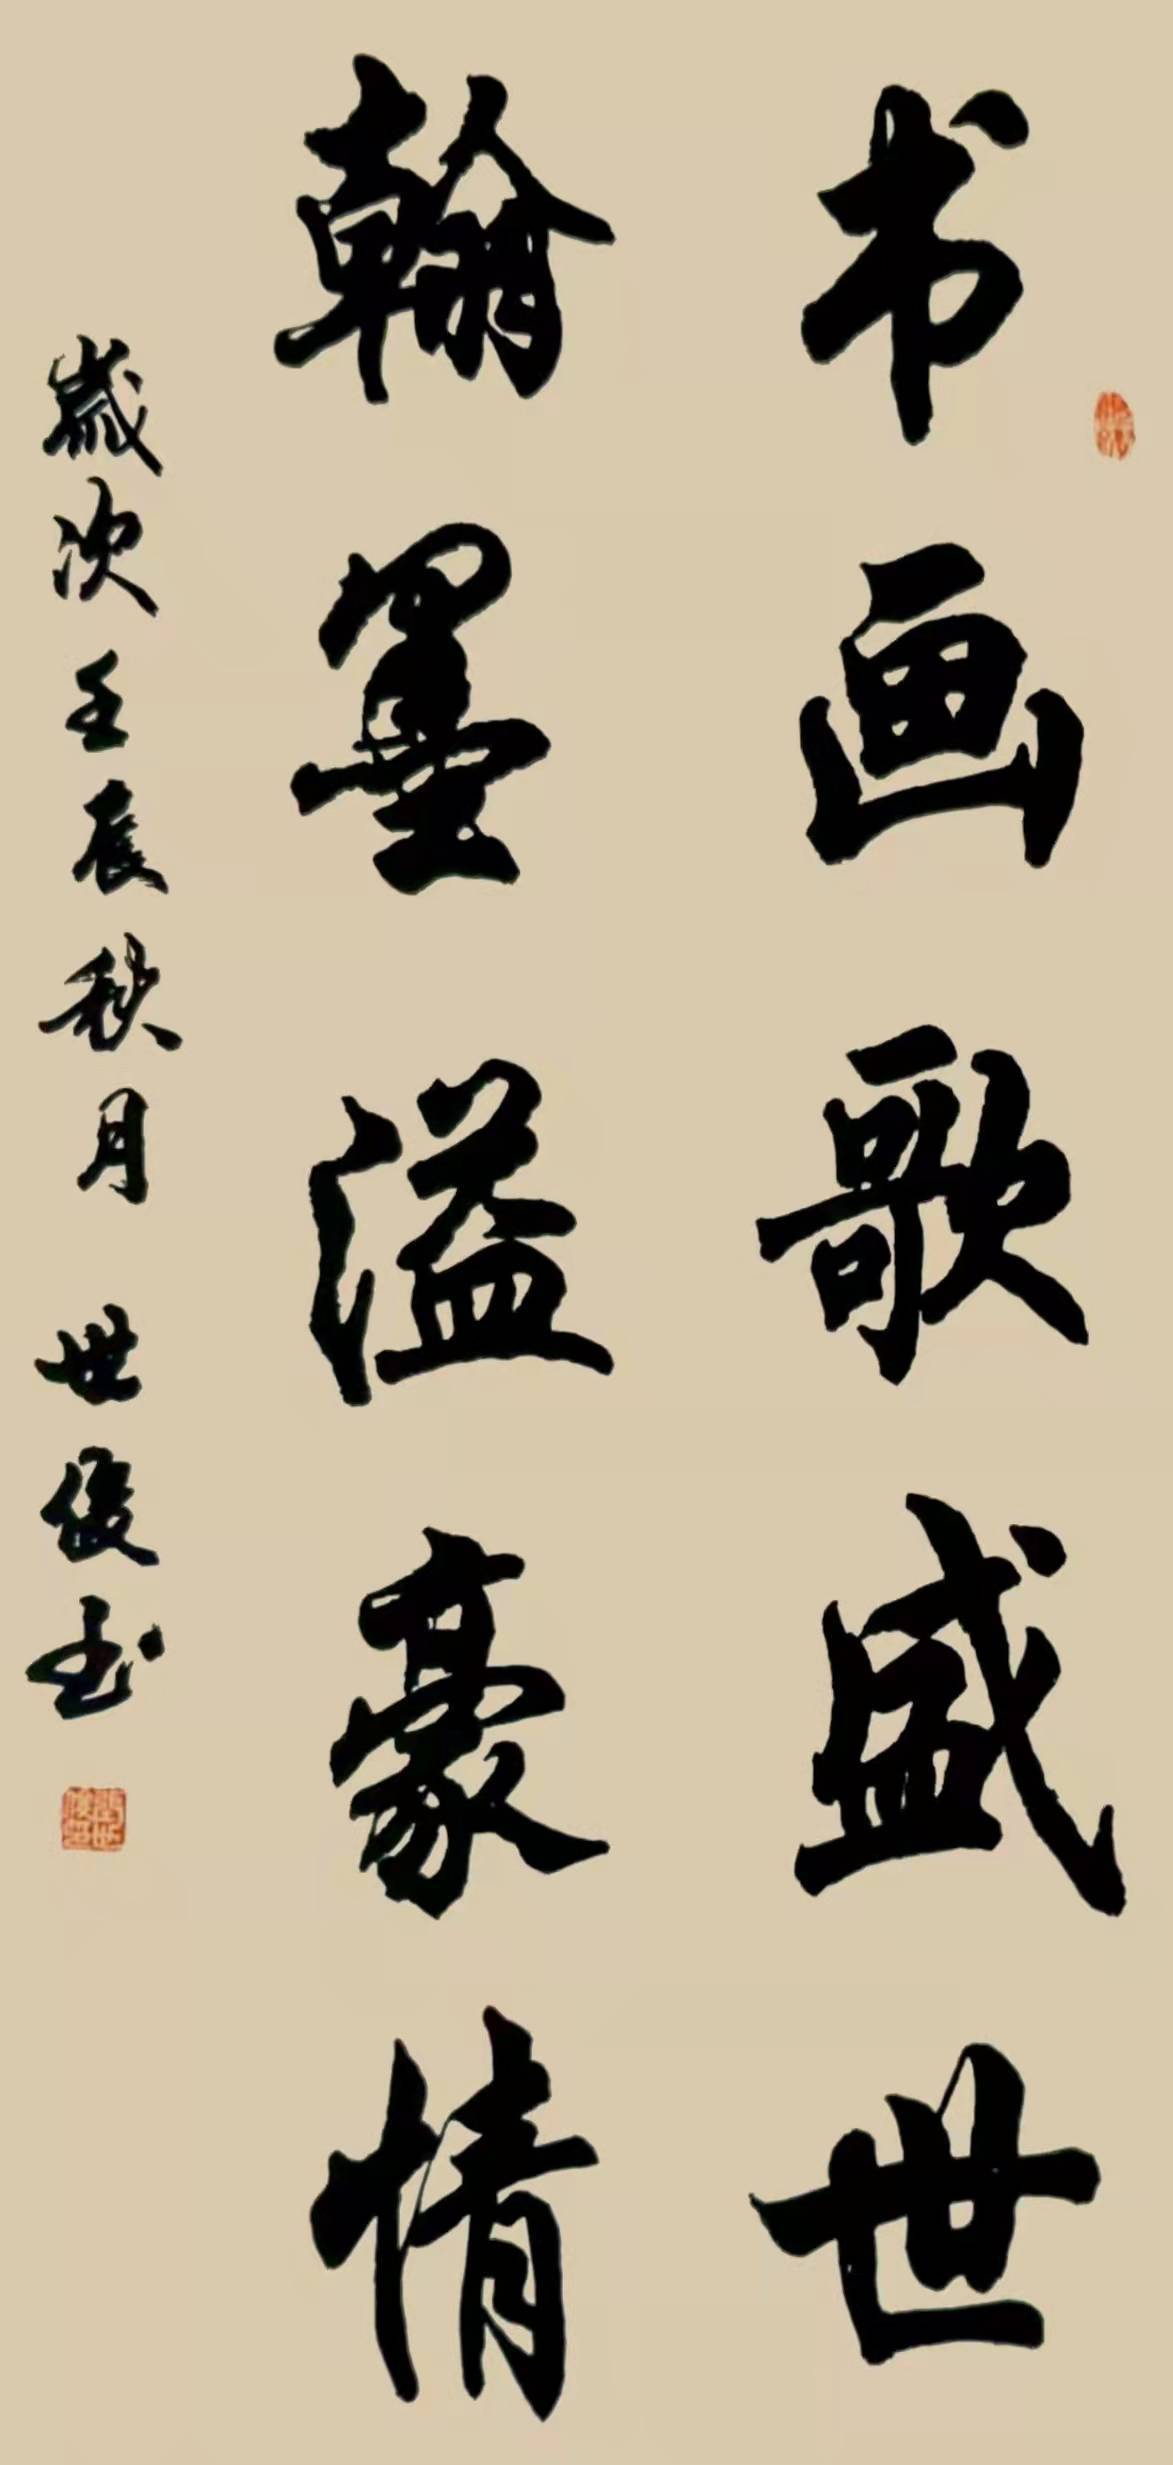 书画歌盛世
翰墨溢豪情
岁次壬辰秋月 世俊书